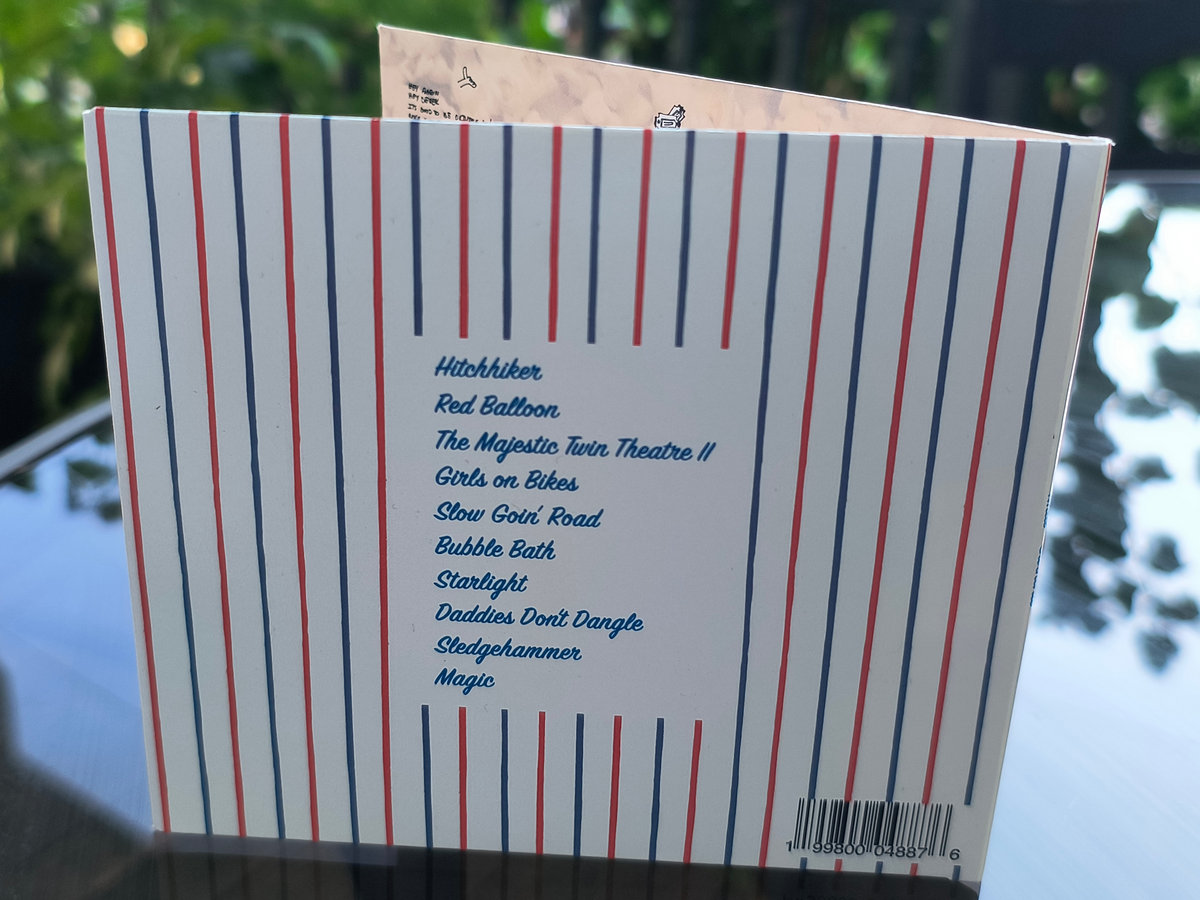 HEY AARON
HEY DEREK
Hitchhiker
Red Balloon
The Majestic Twin Theatre II
Girls on Bikes
Slow Goin' Road
Bubble Bath
Starlight
Daddies Don't Dangle
Sledgehammer
Magic
1 99800 04887 6